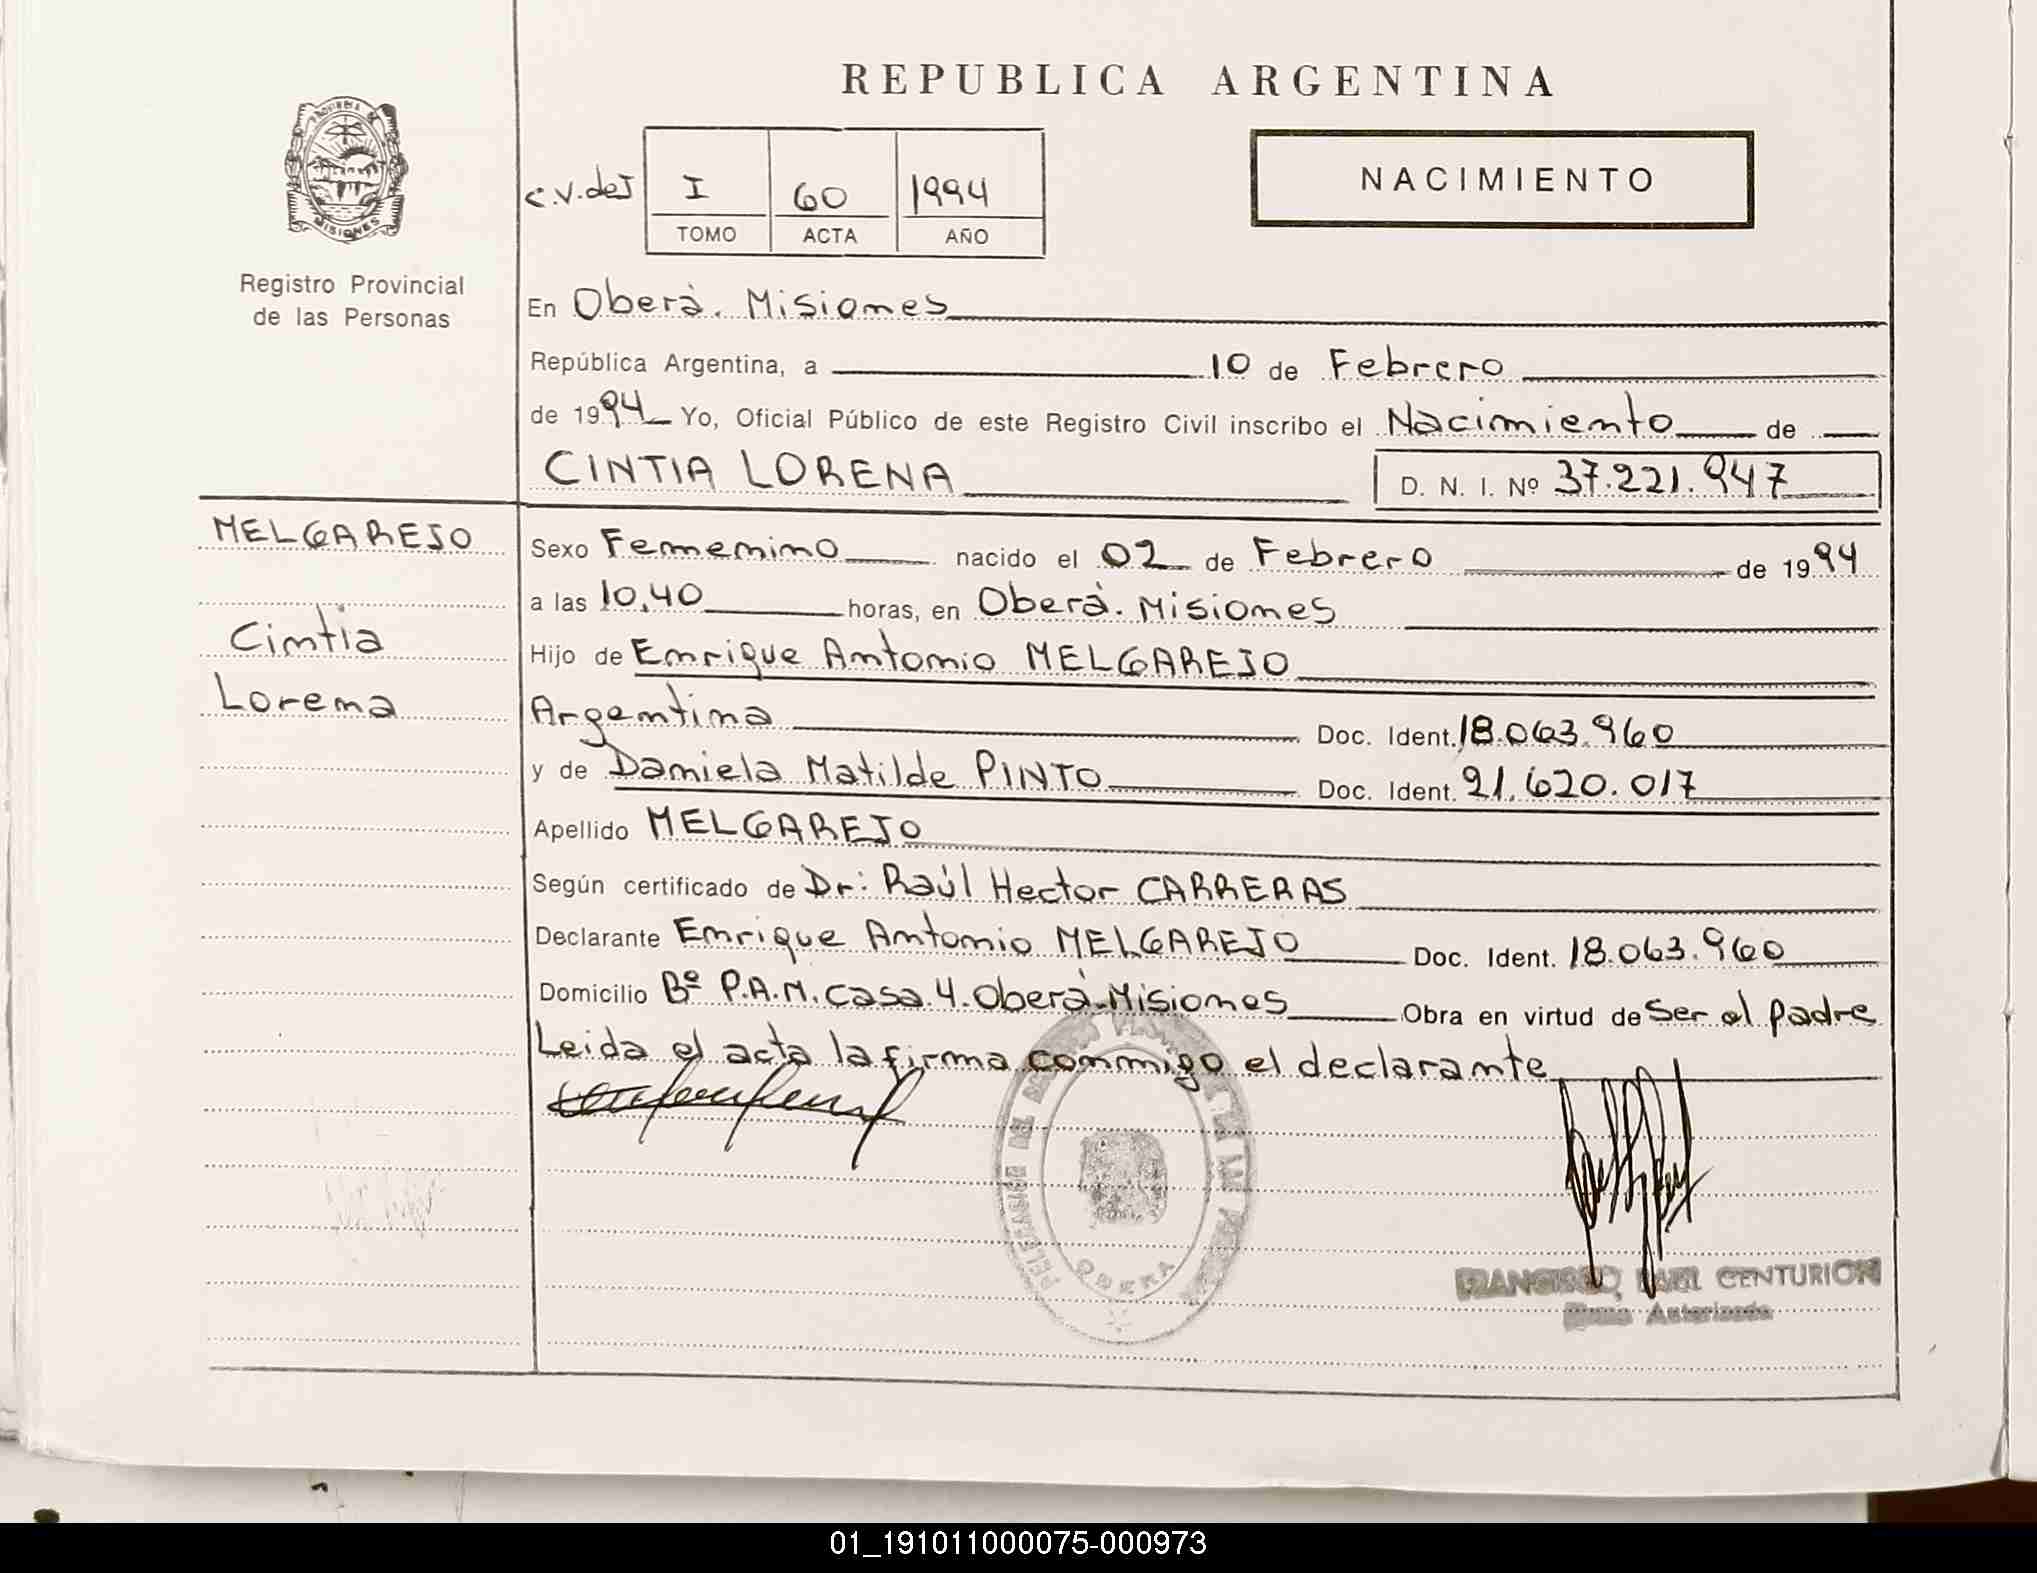 REPUBLICA ARGENTINA
MISIONES
Registro Provincial
de las Personas
c.v.deI I 60 1994
TOMO ACTA AÑO
NACIMIENTO
En Oberà. Misiones
República Argentina, a 10 de Febrero
de 1994 Yo, Oficial Público de este Registro Civil inscribo el Nacimiento de
CINTIA LORENA D. N. I. Nº 37.221.947
MELGAREJO
Cintia
Lorena
Sexo Femenino nacido el 02 de Febrero de 1994
a las 10,40 horas, en Oberà. Misiones
Hijo de Enrique Antonio MELGAREJO
Argentina Doc. Ident. 18.063.960
y de Daniela Matilde PINTO Doc. Ident. 21.620.017
Apellido MELGAREJO
Según certificado de Dr: Raúl Hector CARRERAS
Declarante Enrique Antonio MELGAREJO Doc. Ident. 18.063.960
Domicilio Bº P.A.M. casa 4. Oberà-Misiones Obra en virtud de ser el padre
Leida el acta la firma conmigo el declarante
OBERA
CENTURION
01_191011000075-000973